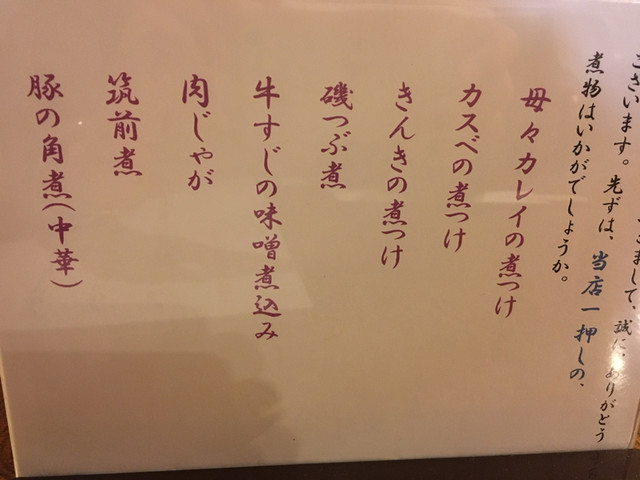 まして、誠に、ありがとう
ございます。先ずは、当店一押しの、
煮物はいかがでしょうか。
母々カレイの煮つけ
カスベの煮つけ
きんきの煮つけ
磯つぶ煮
牛すじの味噌煮込み
肉じゃが
筑前煮
豚の角煮（中華）